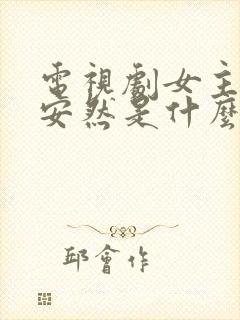 電視劇女主
安然是什麼
邱會作